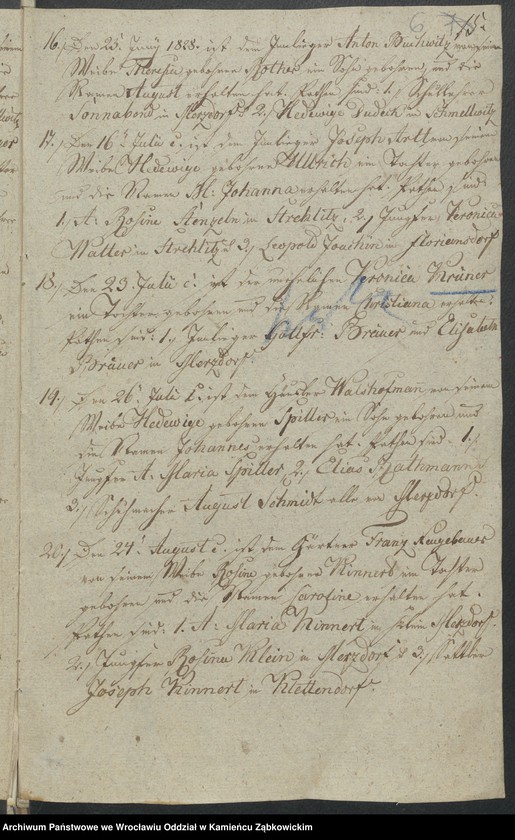 75.
16.) Den 25. Juny 1828. ist dem Inlieger Anton Buchwitz von seinem
Weibe Theresia gebohrne Nother ein Sohn gebohren, und die
Namen August erhalten hat. Pathen sind: 1.) Schullehrer
Sonnabend in Merzdorf 2.) Hedewige Dudeck in Schmellwitz
17.) Den 16t Julii c. ist dem Inlieger Joseph Artl von seinem
Weibe Hedewige gebohrne Ullrich ein Tochter gebohren
und die Namen M: Johanna erhalten hat. Pathen sind
1.) A: Rosine Stenzeln in Strehlitz, 2.) Jungfer Veronica
Walter in Strehlitz 3.) Leopold Joachim in Floriansdorf
18.) Den 23. Julii c. ist der unehelichen Veronica Krüner
ein Tochter gebohren und die Namen Christiana erhalten:
Pathen sind: 1.) Inlieger Gottfr: Bräuer und Elisabeth
Bräuer in Merzdorf.
19.) Den 26. Julii c. ist dem Häusler Walshofman von seinem
Weibe Hedewige gebohrne Spiller ein Sohn gebohren und
die Namen Johannes erhalten hat: Pathen sind: 1.)
Jungfer A: Maria Spiller, 2.) Elias Rathmann
3.) Schuhmacher August Schmidt alle in Merzdorf.
20.) Den 24. August c. ist dem Gärtner Franz Neugebauer
von seinem Weibe Rosine gebohrne Kinnert ein Tochter
gebohren und die Namen Caroline erhalten hat.
Pathen sind: 1. A: Maria Kinnert in Merzdorf.
2.) Jungfer Rosina Klein in Merzdorf 3.)
Joseph Kinnert in Klettendorf.
Archiwum Państwowe we Wrocławiu Oddział w Kamieńcu Ząbkowickim